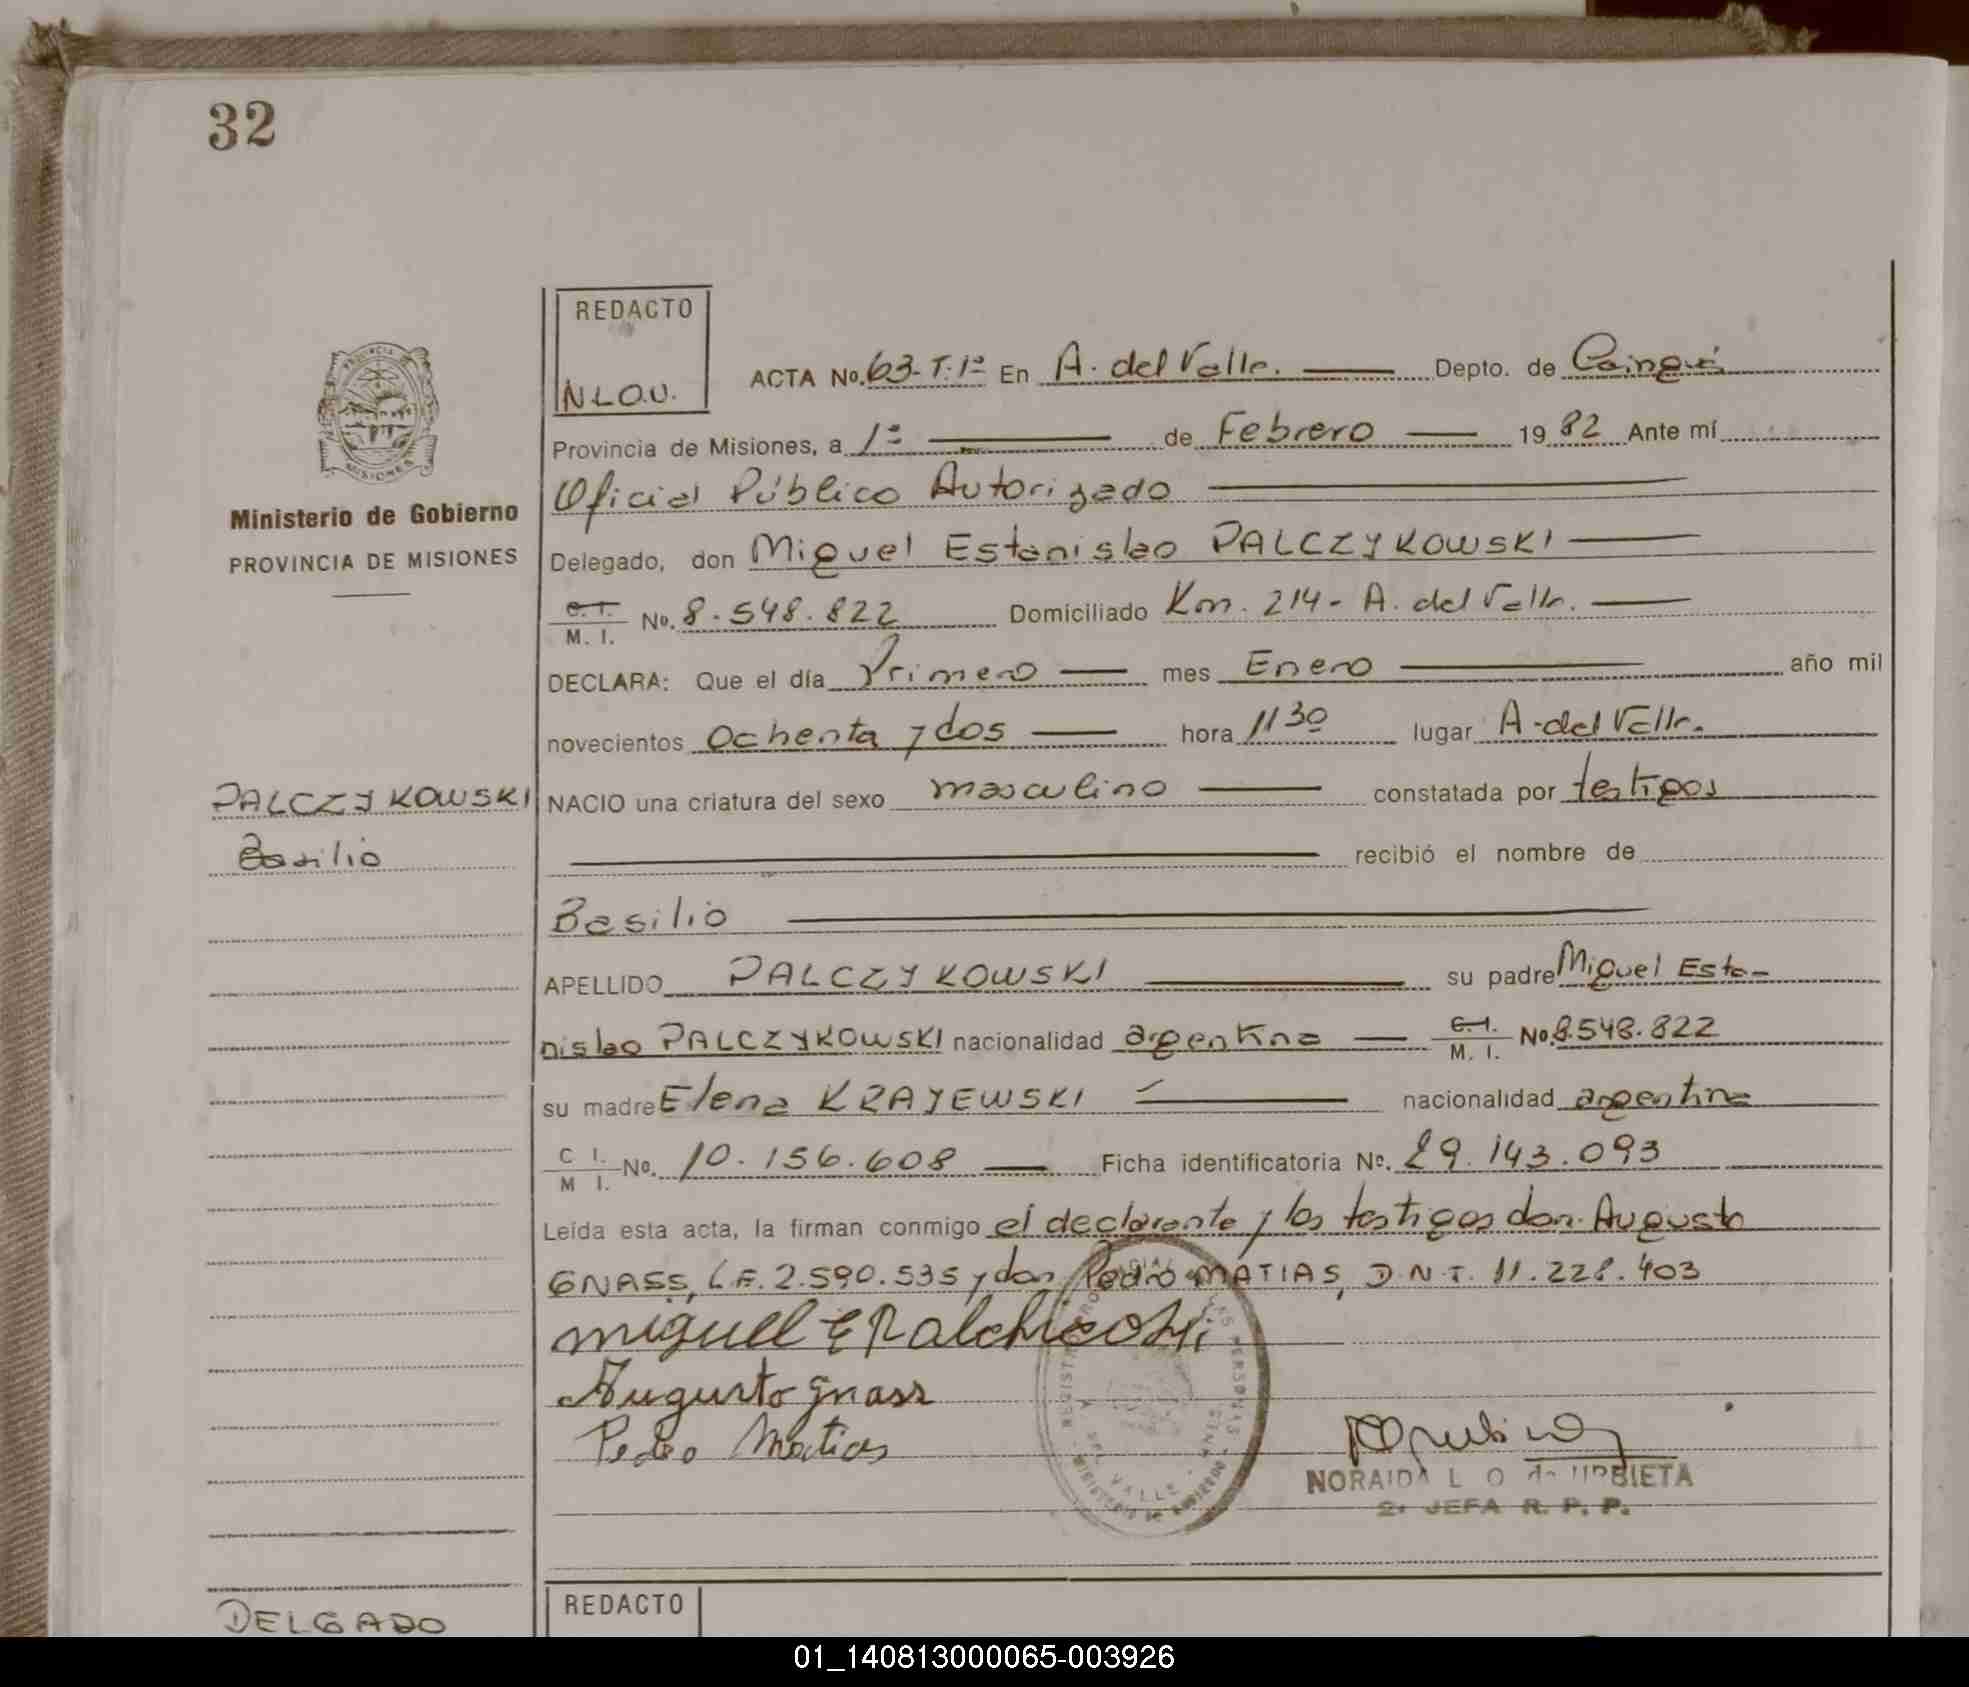 32
REDACTO
N.L.O.U.
PROVINCIA DE
MISIONES
Ministerio de Gobierno
PROVINCIA DE MISIONES
ACTA No. 63-T.1º En A. del Valle. Depto. de Cainguá
Provincia de Misiones, a 1º de Febrero 1982 Ante mí
Oficial Público Autorizado
Delegado, don Miguel Estanislao PALCZYKOWSKI
C. I.
M. I. No. 8.548.822 Domiciliado Km. 214- A. del Valle.
DECLARA: Que el día Primero mes Enero año mil
novecientos Ochenta y dos hora 11 30 lugar A. del Valle.
PALCZYKOWSKI
Basilio
NACIO una criatura del sexo masculino constatada por testigos
recibió el nombre de
Basilio
APELLIDO PALCZYKOWSKI su padre Miguel Esta-
nislao PALCZYKOWSKI nacionalidad argentina C. I. M. I. No. 8.548.822
su madre Elena KRAYEWSKI nacionalidad argentina
C I. M I. No. 10.156.608 Ficha identificatoria No. 29.143.093
Leída esta acta, la firman conmigo el declarante y los testigos don Augusto
GNASS, L.E. 2.590.535 y don Pedro MATIAS, D.N.I. 11.228.403
miguel E Palchicoski
Augusto gnass
Pedro Matias
NORAIDA L O de URBIETA
2ª JEFA R. P. P.
REDACTO
DELGADO
01_140813000065-003926